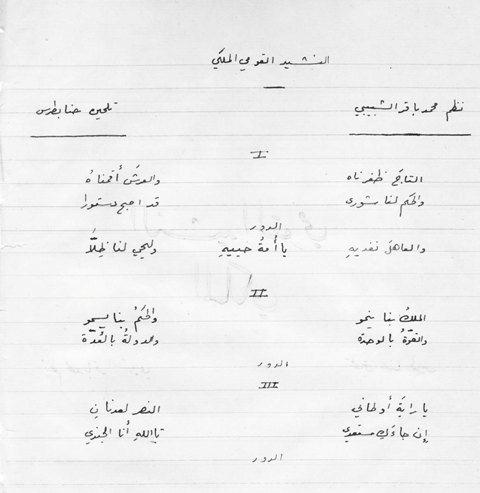 النشيد القومي الملكي
نظم محمد باقر الشبيبي تلحين حنا بطرس
I
التاجَ ظفرناه والعرشَ أقمناهُ
والحكم لنا شورى قد اصبح دستورا
الدور
والعاهلَ نفديهِ يا أُمةُ حييهِ وليحي لنا ظِلَّا
II
الملكُ بنا ينمو والحكمُ بنا يسمو
والقوّةُ بالوحدة والدولةُ بالعُدّة
الدور
III
يا رايةَ أوطاني النصر لعدنانِ
إن جاءَكِ مستعدي تاالله أنا الجندي
الدور